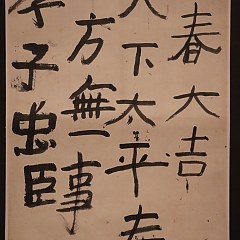 春大吉
天下太平春
方無一事
孝子忠臣